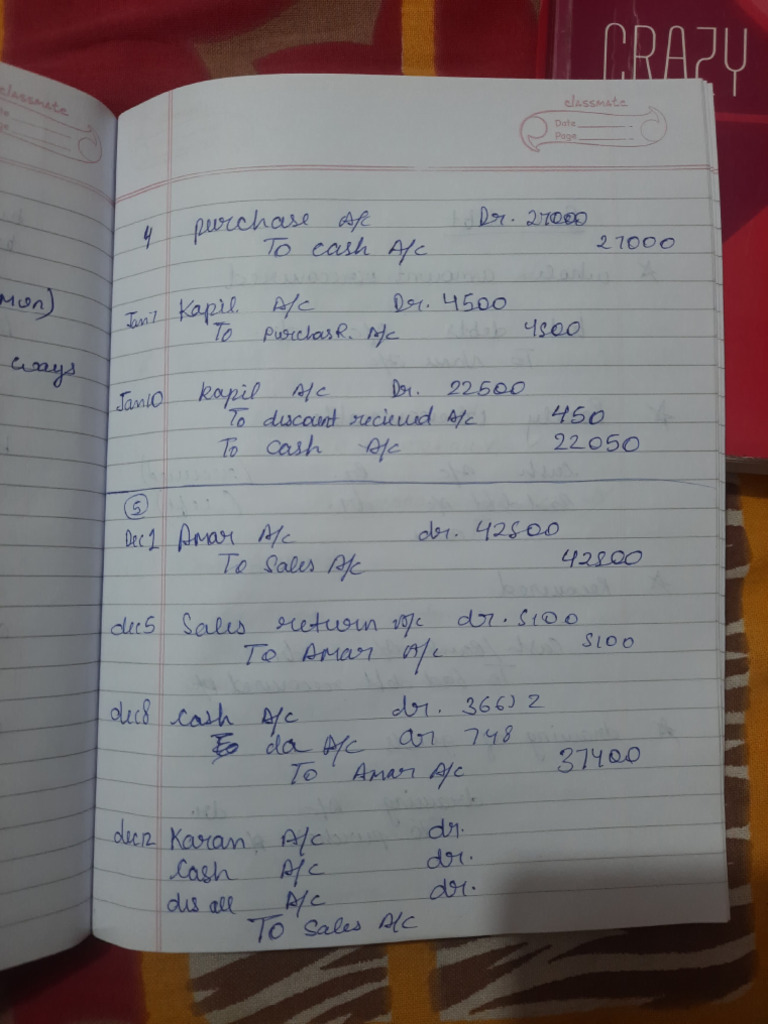 CRAZY
classmate
Date
Page
classmate
Date
Page
4 purchase A/c Dr. 27000
To cash A/c 27000
Jan 7 Kapil A/c Dr. 4500
To purchas R. A/c 4500
Jan 10 Kapil A/c Dr. 22500
To discount recieved A/c 450
To cash A/c 22050
5
Dec 1 Amar A/c dr. 42500
To Sales A/c 42500
dec 5 Sales return A/c dr. 5100
To Amar A/c 5100
dec 8 Cash A/c dr. 36652
da A/c dr 748
To Amar A/c 37400
dec 12 Karan A/c dr.
Cash A/c dr.
dis all A/c dr.
To Sales A/c
ways